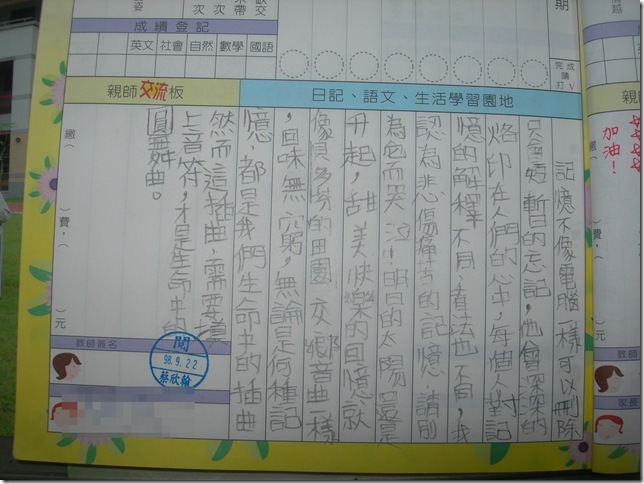 期
完成請打V
成績登記
英文 社會 自然 數學 國語
次 次 帶 交
姿
親師交流板
日記、語文、生活學習園地
記憶不像電腦一樣可以刪除
只會短暫的忘記,他會深深的
烙印在人們的心中,每個人對記
憶的解釋不同,看法也不同,我
認為悲傷痛苦的記憶,請別
為它而哭泣,明日的太陽還是
升起,甜美快樂的回憶就
像貝多芬的田園交響曲一樣
,回味無窮,無論是何種記
憶,都是我們生命中的插曲
然而這插曲,需要填
上音符,才是生命中的
圓舞曲。
繳(
)費,(
)元
教師簽名
閱
98.9.22
蔡欣翰
加油!
親師
繳(
)費,(
)元
教師
家長